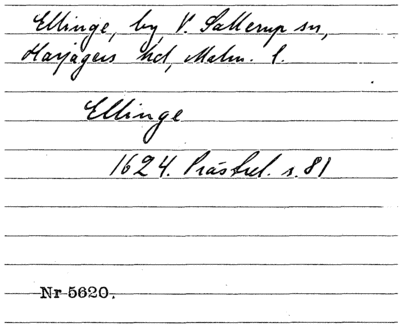 Ellinge, by, V. Sallerup sn,
Harjagers hd, Malm. l.
Ellinge
1624. Prästrel. s. 81
Nr 5620.